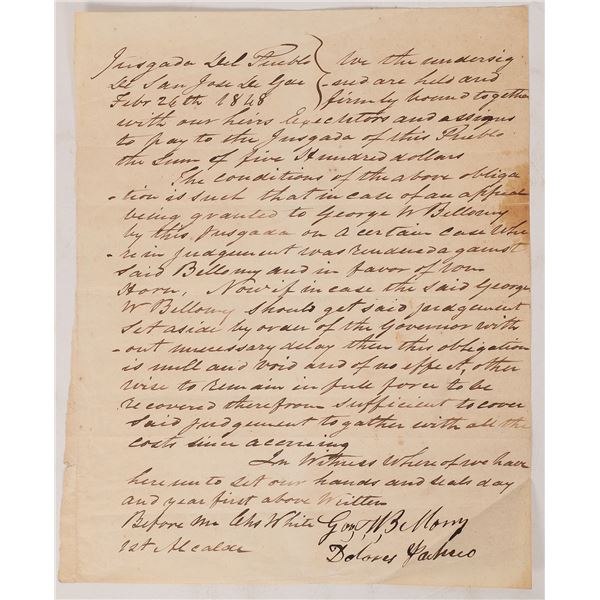 Jusgada Del Pueblo
De San Jose De Gua
Febr 26th 1848
We the undersig
-ned are held and
firmly bound together
with our heirs Executors and assigns
to pay to the Jusgada of this Pueblo
the Sum of five Hundred dollars
The conditions of the above obliga
-tion is such that in case of an appeal
being granted to George W Bellomy
by this Jusgada on a certain case whe
-re in judgement was rendered against
Said Bellomy and in favor of Wm
Horn, Now if in case the said George
W Bellomy Should get said judgement
Set aside by order of the Governor with
-out unnecessary delay then this obligation
is null and void and of no effect, other
wise to remain in full force to be
recovered therefrom sufficient to cover
said judgement to gather with all the
costs since accruing
In Witness Where of we have
here un to set our hands and seals day
and year first above Written
Before me Chs White Geo W Bellomy
1st Alcalde Dolores Pacheco